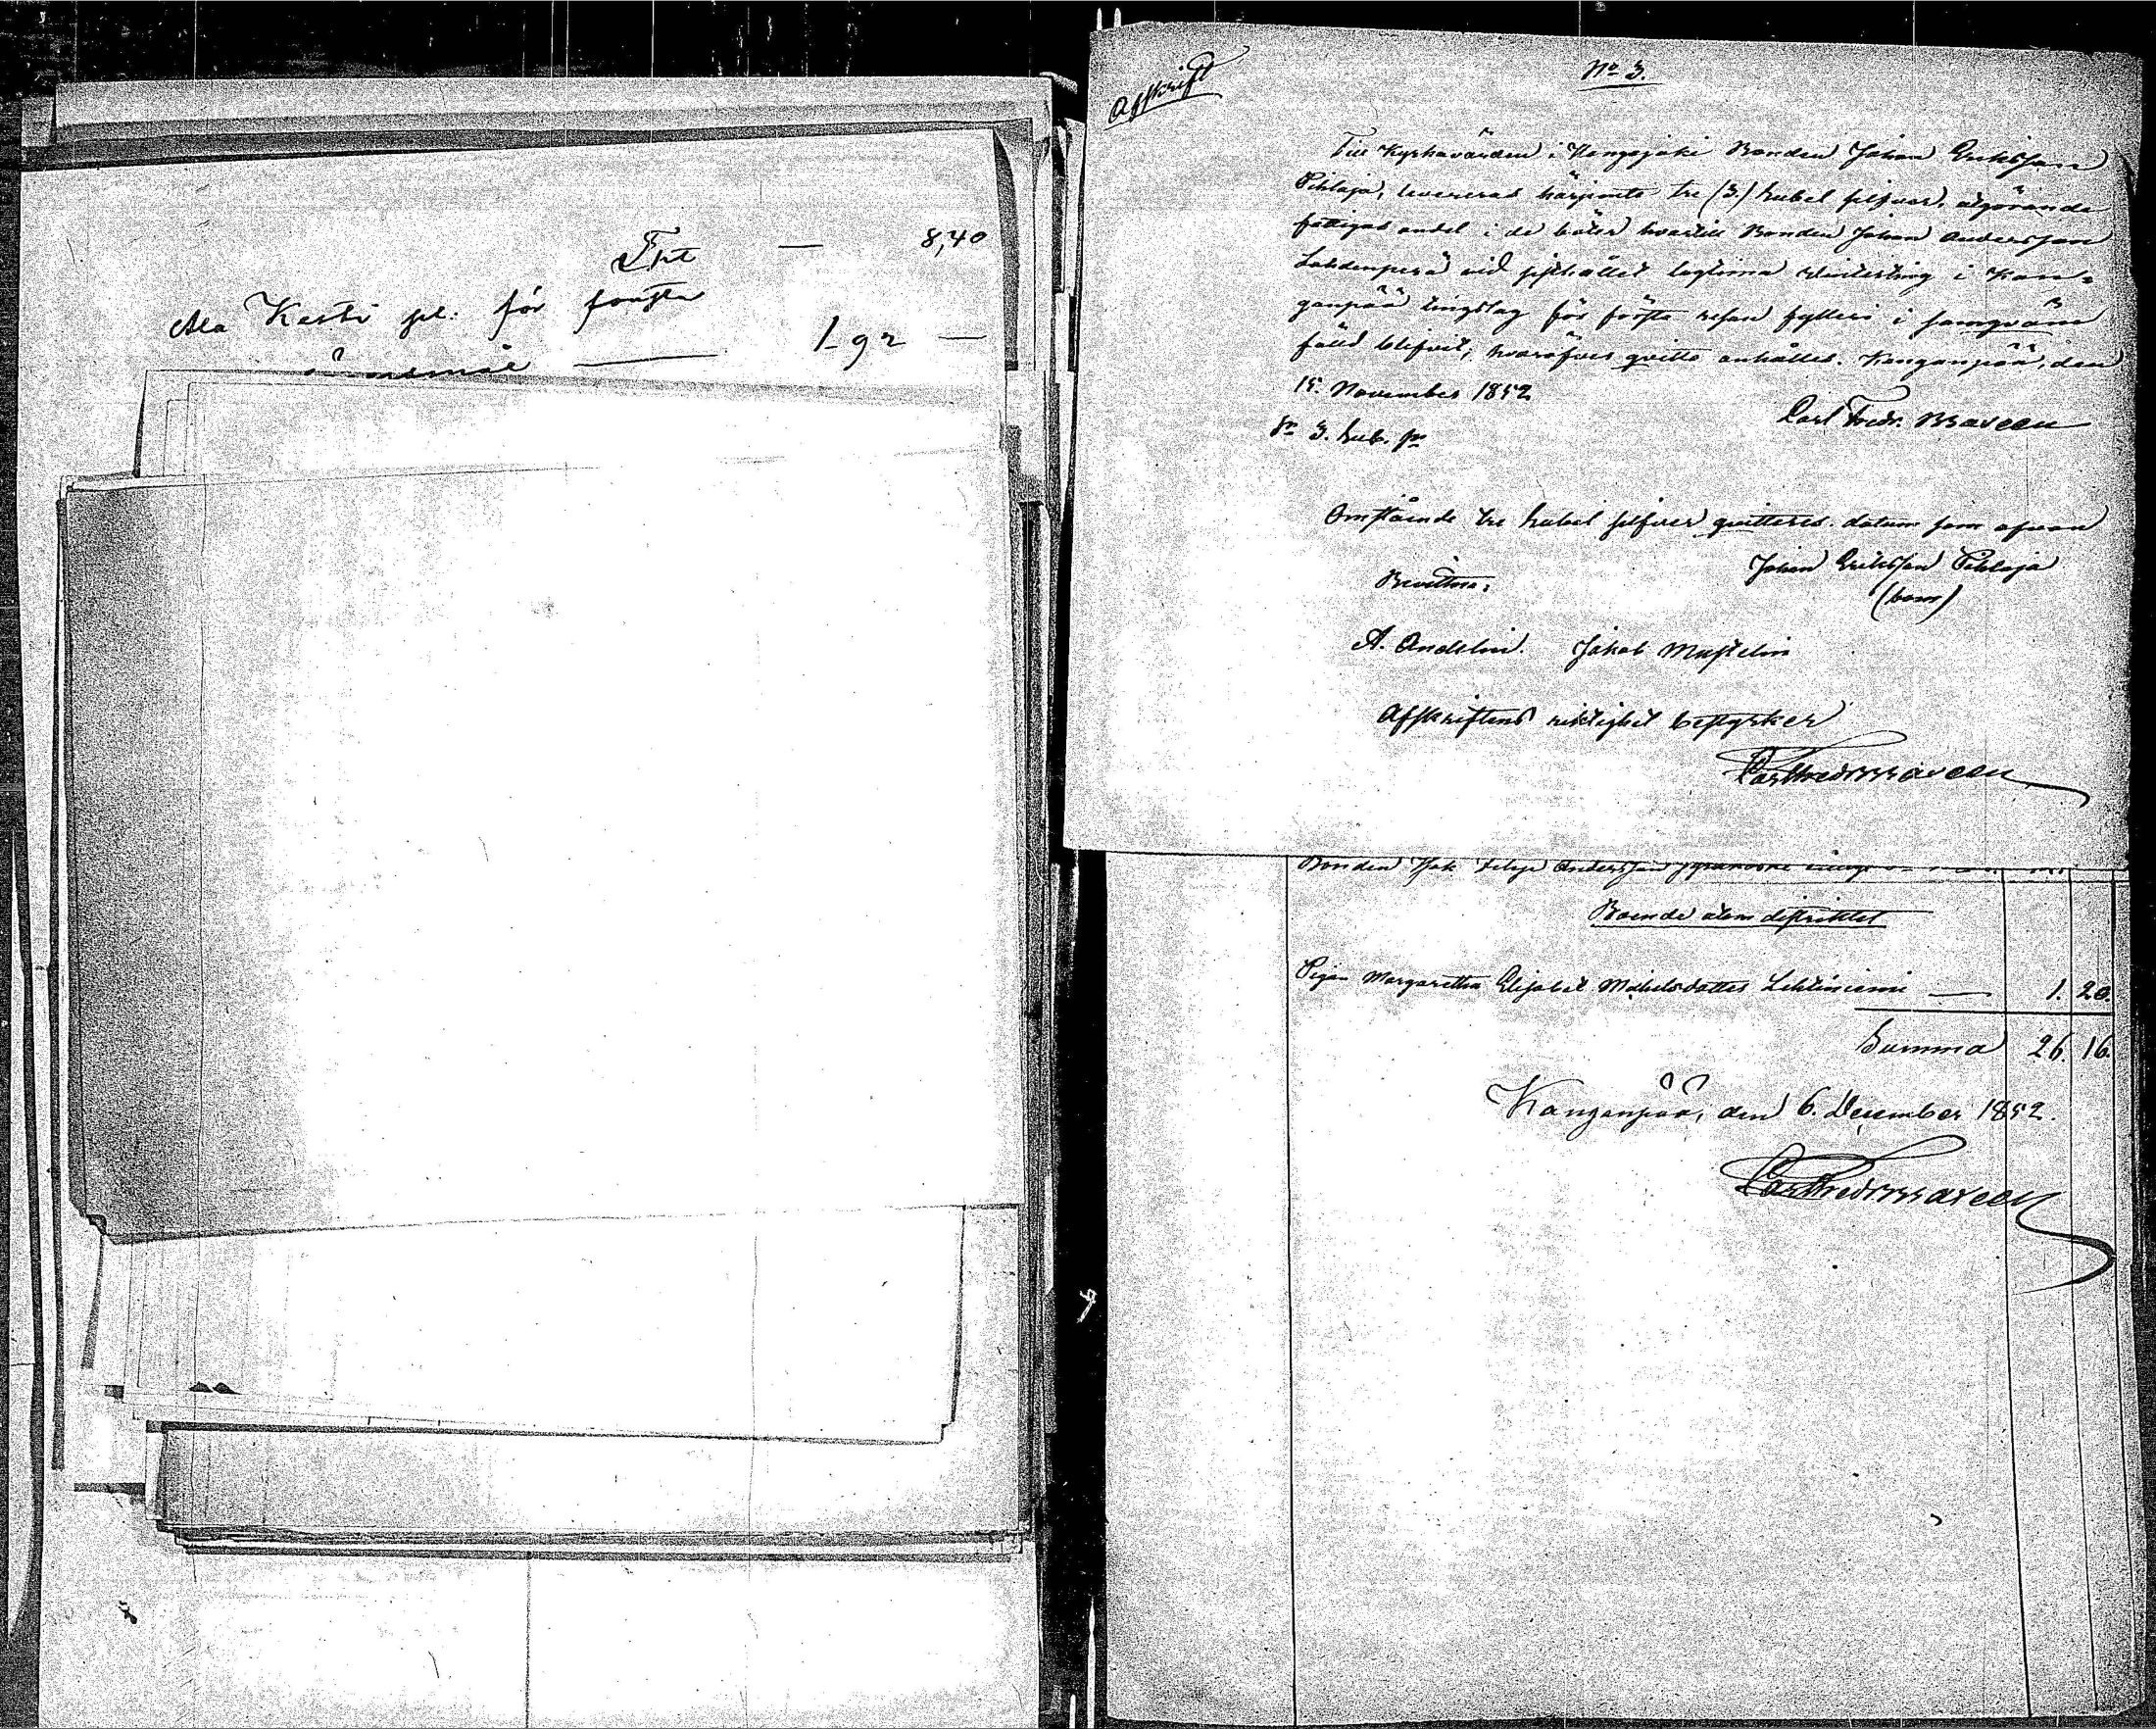 Frt — 8,40
Ala Keski pl. för första
— 1 92 —
Afskrift
No 3.
Till Kyrkovärden i Kongsjoki Bonden Johan Eriksson
Pihlaja, levereras härjemte tre (3) Rubel silfver, utgörande
fattigas andel i de böter hvartill Bonden Johan Andersson
Lahdenperä vid sisthållet lagtima Vinterting i Kan-
ganpää tingslag för första resan fylleri i samqväm
fälld blifvit; hvaröfver qvitto anhålles. Kanganpää, den
15. November 1852
Carl Fredr. Bvaveen
Sr 3. Rub. Sr
Omstående tre Rubel silfver qvitteras. datum som ofvan
Johan Eriksson Pihlaja
(bom)
Bevittna:
A. Andelin. Jakob Mustelin
Afskriftens riktighet bestyrker
Bonden Isak Andersson
Boende utom distriktet
Pigan Margaretha Elisabet Mickelsdotter Lehtiniemi — 1. 20.
Summa 26 16.
Kanganpää, den 6. December 1852.